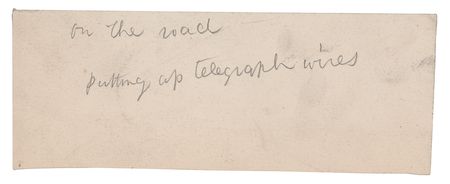 on the road
putting up telegraph wires